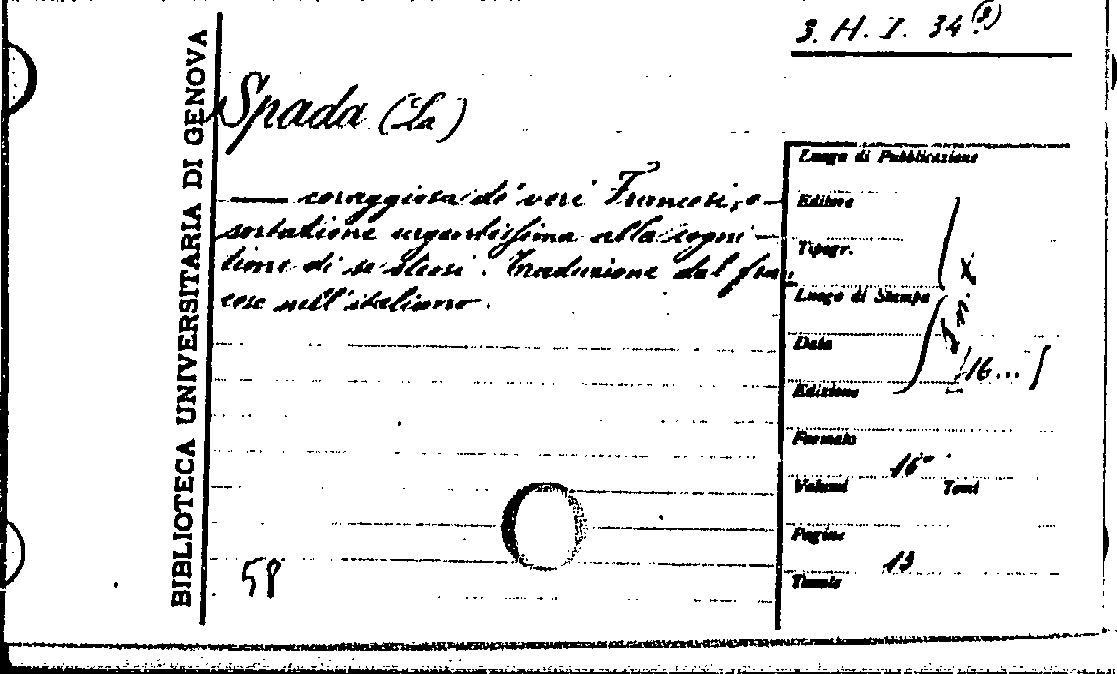 3. H. I. 34 (8)
BIBLIOTECA UNIVERSITARIA DI GENOVA
Spada (La)
— coraggiosa de' veri Francesi, e
sortatione urgentissima alla cogni
tione di se stessi. Traduzione dal fran
cese nell'italiano.
58
Luogo di Pubblicazione
Editore
Tipogr.
Luogo di Stampa
Data
Edizione
[16...]
Formato
16°
Volumi Tomi
Pagine
Tavole